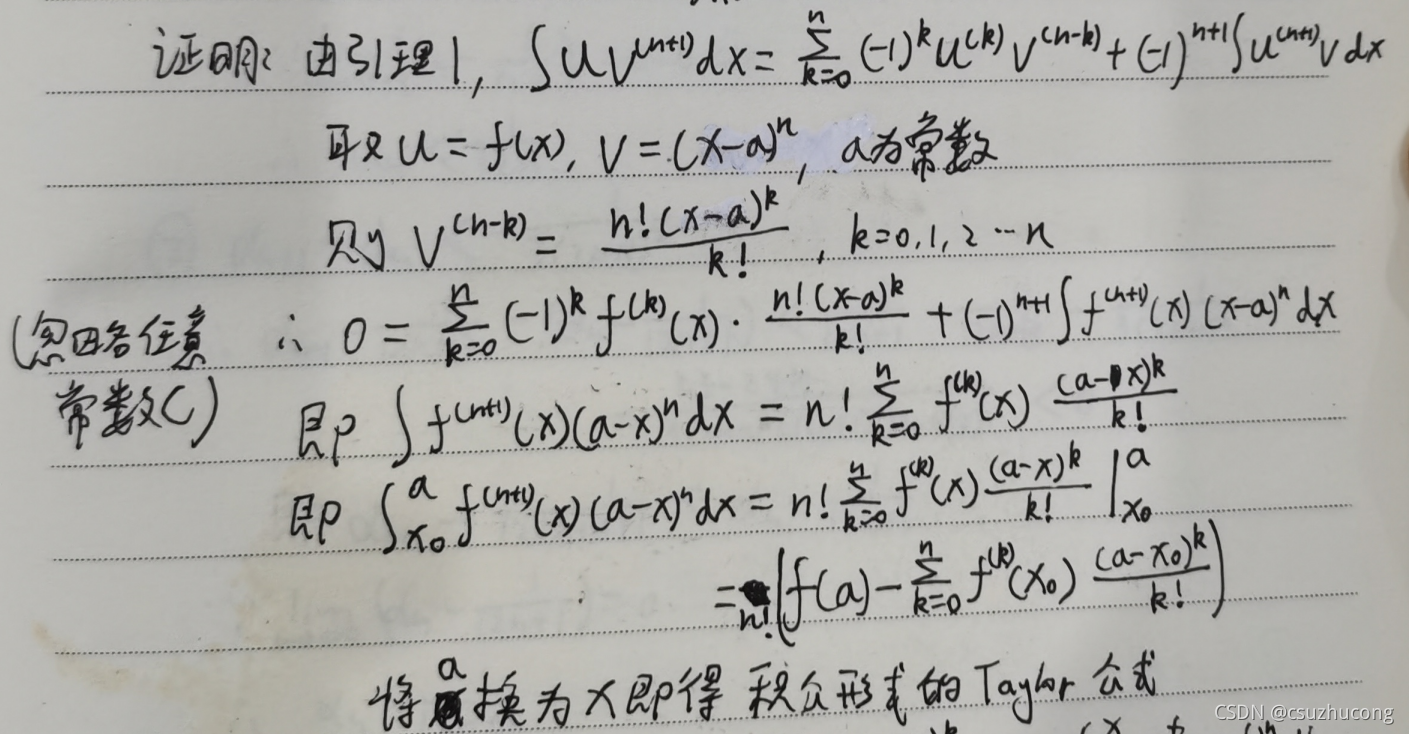 证明：由引理1, ∫uv⁽ⁿ⁺¹⁾dx = ∑_{k=0}^{n} (-1)^k u^{(k)} v^{(n-k)} + (-1)^{n+1} ∫u^{(n+1)} v dx
取 u = f(x), v = (x-a)^n, a为常数
则 v^{(n-k)} = n!(x-a)^k / k! , k=0,1,2…n
(忽略任意 ∴ 0 = ∑_{k=0}^{n} (-1)^k f^{(k)}(x)· n!(x-a)^k / k! + (-1)^{n+1} ∫f^{(n+1)}(x)(x-a)^n dx
常数C) 即 ∫f^{(n+1)}(x)(a-x)^n dx = n! ∑_{k=0}^{n} f^{(k)}(x) (a-x)^k / k!
即 ∫_{x₀}^{a} f^{(n+1)}(x)(a-x)^n dx = n! ∑_{k=0}^{n} f^{(k)}(x) (a-x)^k / k! |_{x₀}^{a}
= n! (f(a) - ∑_{k=0}^{n} f^{(k)}(x₀) (a-x₀)^k / k!)
将a换为x即得 积分形式的Taylor公式
CSDN @csuzhucong